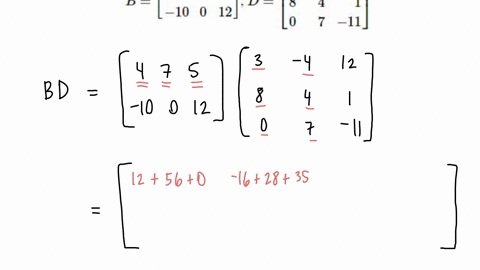 B = [ -10 0 12 ], D = [ 8 4 1
0 7 -11 ]
BD = [ 4 7 5 [ 3 -4 12
-10 0 12 ] 8 4 1
0 7 -11 ]
= [ 12 + 56 + 0 -16 + 28 + 35 ]